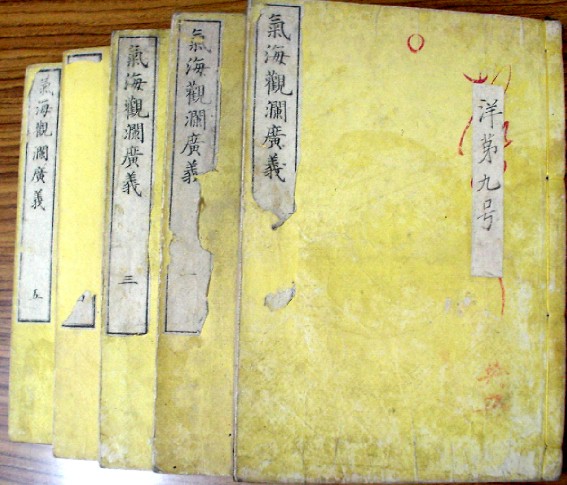 洋第九号
氣海觀瀾廣義
氣海觀瀾廣義 一
氣海觀瀾廣義 三
氣海觀瀾廣義 五